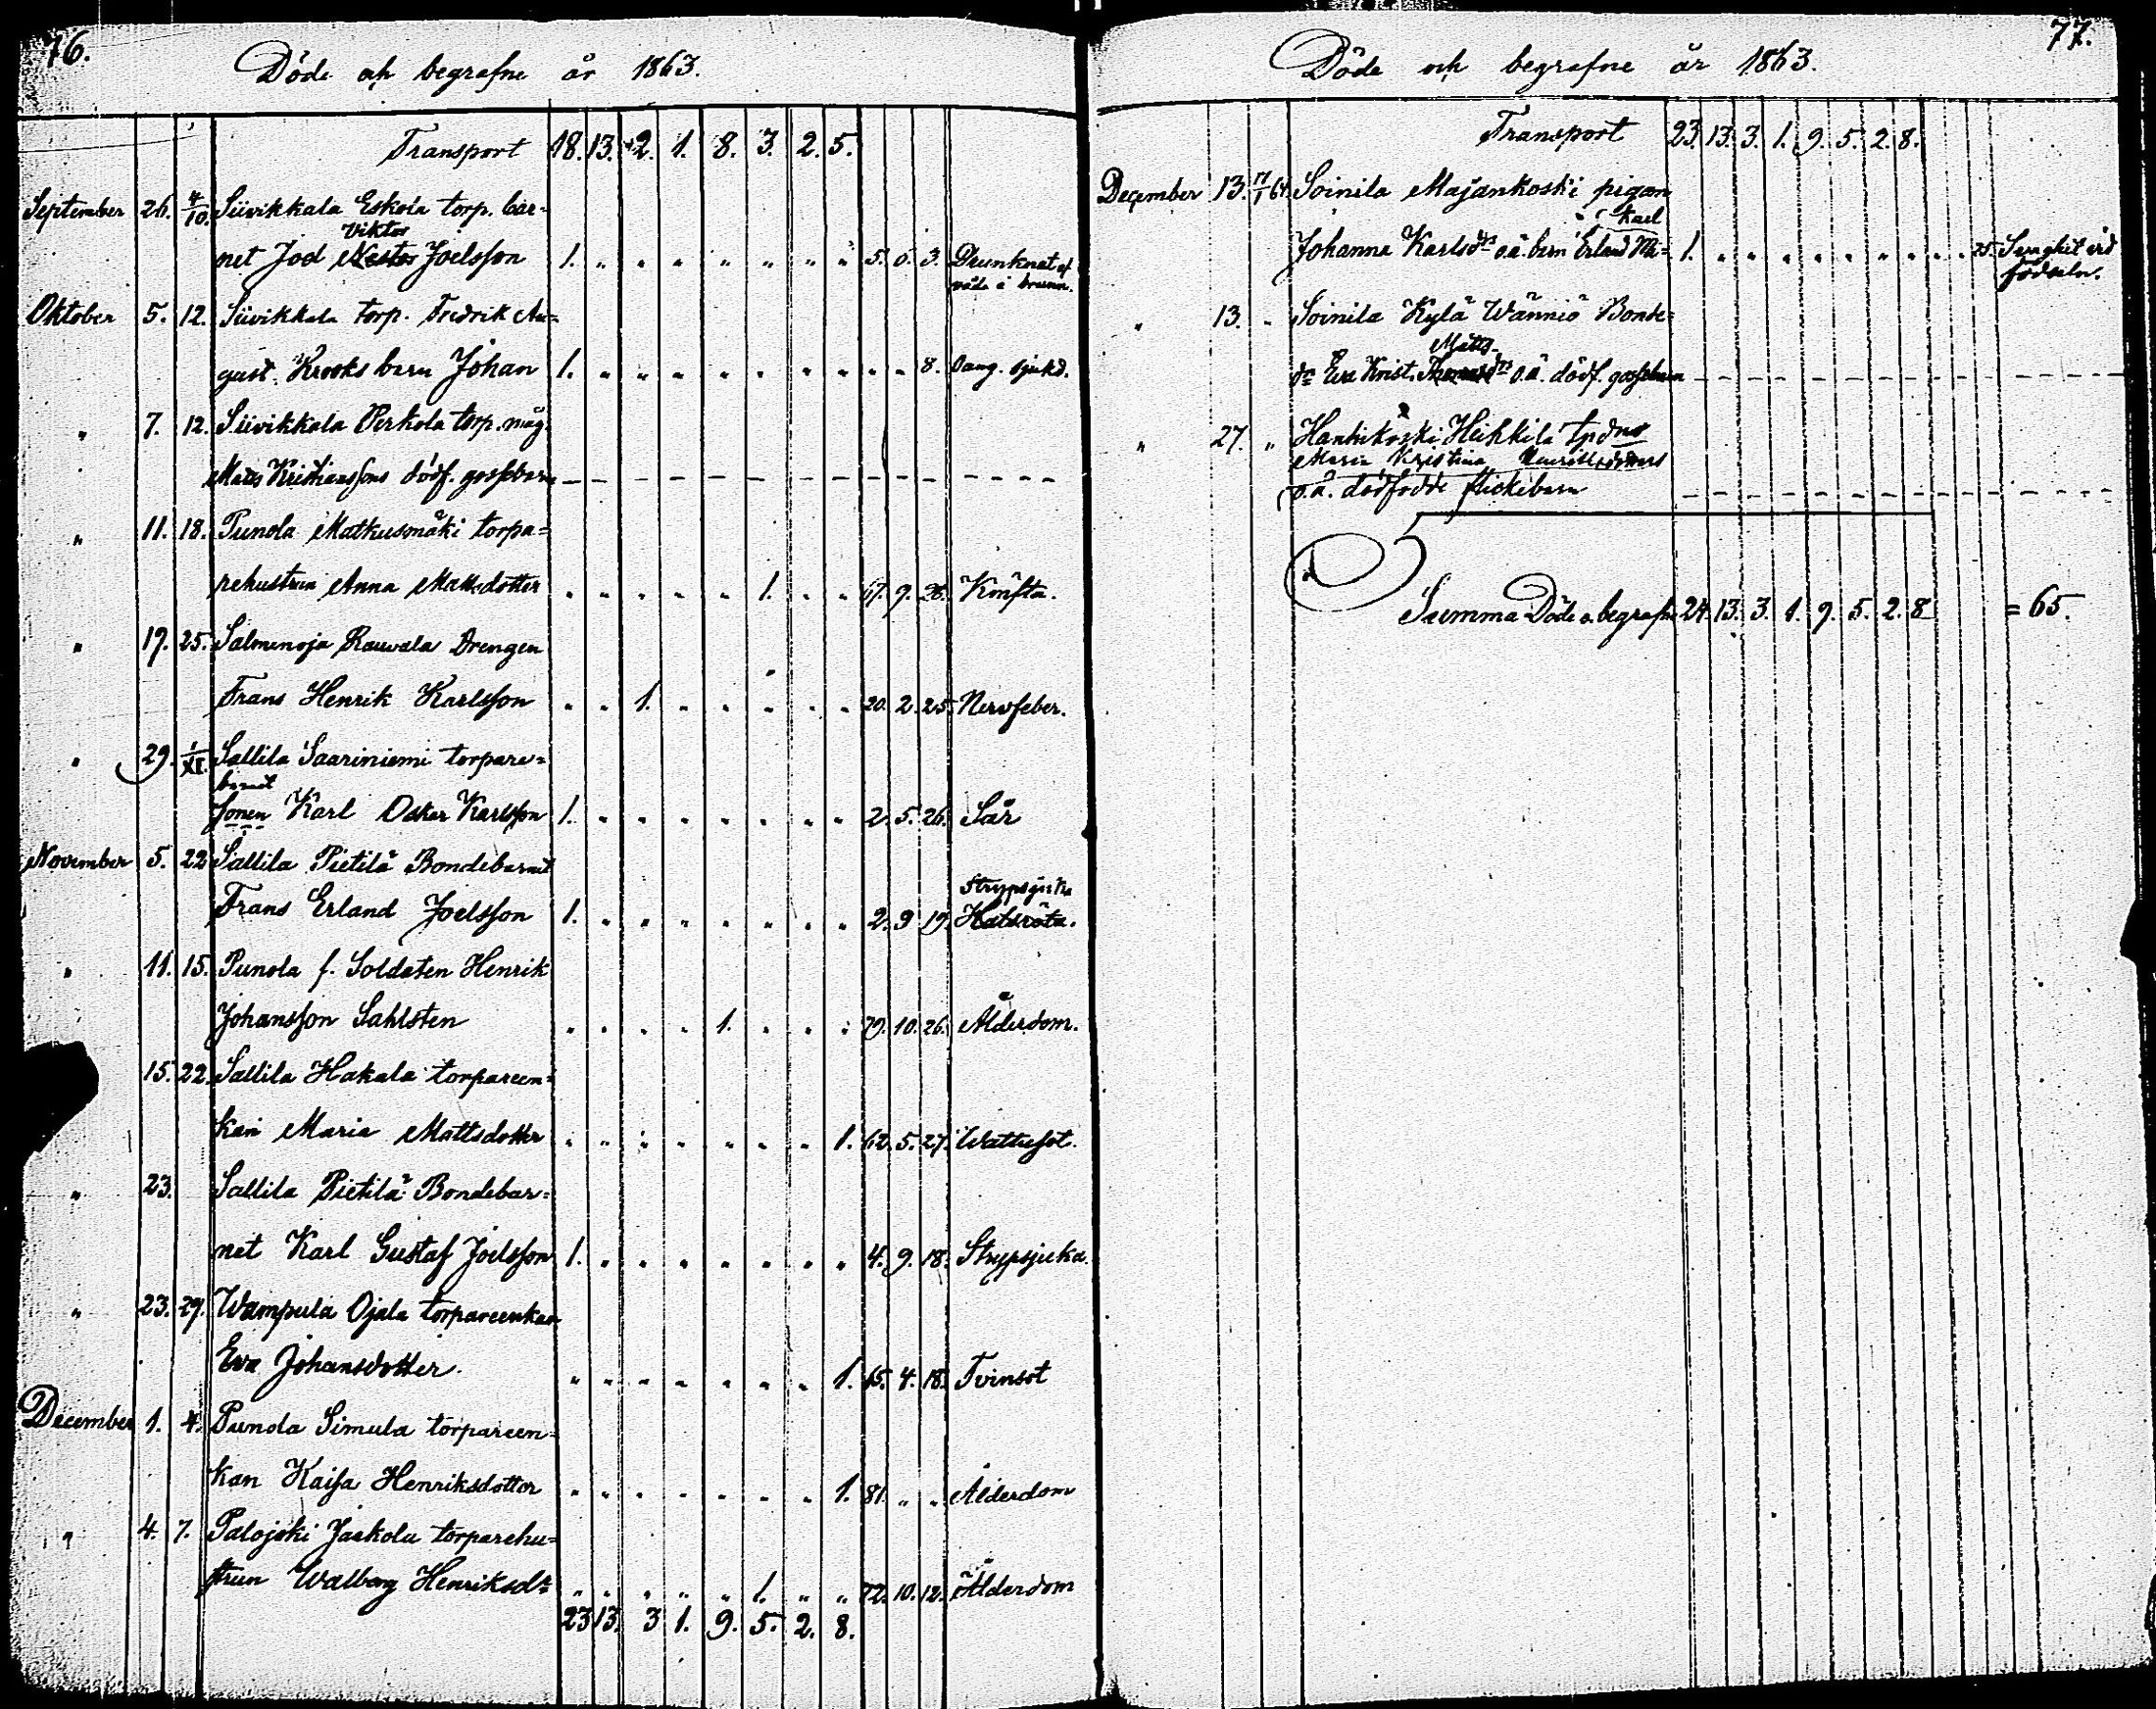 76.
Döde och begrafne år 1863.
Transport 18. 13. 2. 1. 8. 3. 2. 5.
September 26. 4/10. Siivikkala Eskola torp. bar-
Viktor
net Joel Nestor Joelsson 1. " " " " " " " 5. 6. 3. Drunknat af
våda i brunn.
Oktober 5. 12. Siivikkala torp. Fredrik Au=
gust Krooks barn Johan 1. " " " " " " " " " 8. Oang. sjukd.
" 7. 12. Siivikkala Perkola torp. måg
Matts Kristianssons dödf. gossebarn - - - - - - - - - - - -
" 11. 18. Punola Matkusmäki torpa=
rehustrun Anna Mattsdotter " " " " " 1. " " 67. 9. 28. Kräfta.
" 19. 25. Salmenoja Rauvala Drengen
Frans Henrik Karlsson " " 1. " " " " " 20. 2. 25. Nervfeber.
" 29. 1/XI. Sallila Saariniemi torpare=
barnet
sonen Karl Oskar Karlsson 1. " " " " " " " 2. 5. 26. Sår
November 5. 22 Sallila Pietilä Bondebarnet
Strypsjuka
Frans Erland Joelsson 1. " " " " " " " 2. 9 19. Halsröta.
" 11. 15. Punola f. Soldaten Henrik
Johansson Sahlsten " " " " 1. " " " 79. 10. 26. Ålderdom.
15. 22. Sallila Hakala torpareen=
kan Maria Mattsdotter " " " " " " " 1. 62. 5. 27. Wattusot.
" 23. Sallila Pietilä Bondebar=
net Karl Gustaf Joelsson 1. " " " " " " " 4. 9. 18. Strypsjuka.
" 23. 29. Wampula Ojala torpareenkan
Eva Johansdotter. " " " " " " " 1. 65. 4. 18. Tvinsot
December 1. 4. Punola Simula torpareen=
kan Kaisa Henriksdotter " " " " " " " 1. 81. " " Ålderdom
" 4. 7. Palojoki Jaakola torparehu=
strun Walborg Henriksdr " " " " " 1. " " 72. 10. 12. Ålderdom
23 13. 3 1. 9. 5. 2. 8.
77.
Döde och begrafne år 1863.
Transport 23. 13. 3. 1. 9. 5. 2. 8.
December 13. 17/1 64. Soinila Majankoski pigan
Karl
Johanna Karlsdrs o.ä. barn Erland Mi= 1. " " " " " " " " " 25. Svaghet vid
födseln.
" 13. " Soinila Kylä Wänniö Bonde=
Matts
dr Eva Krist. Thomasdrs o.ä. dödf. gossebarn - - - - - - - - - - - -
" 27. " Hanhikoski Heikkilä tpdns
Maria Kristina Henriksdotters
o.ä. dödfödde flickebarn - - - - - - - - - - - -
Summa Döde o. begrafne 24. 13. 3. 1. 9. 5. 2. 8 = 65.